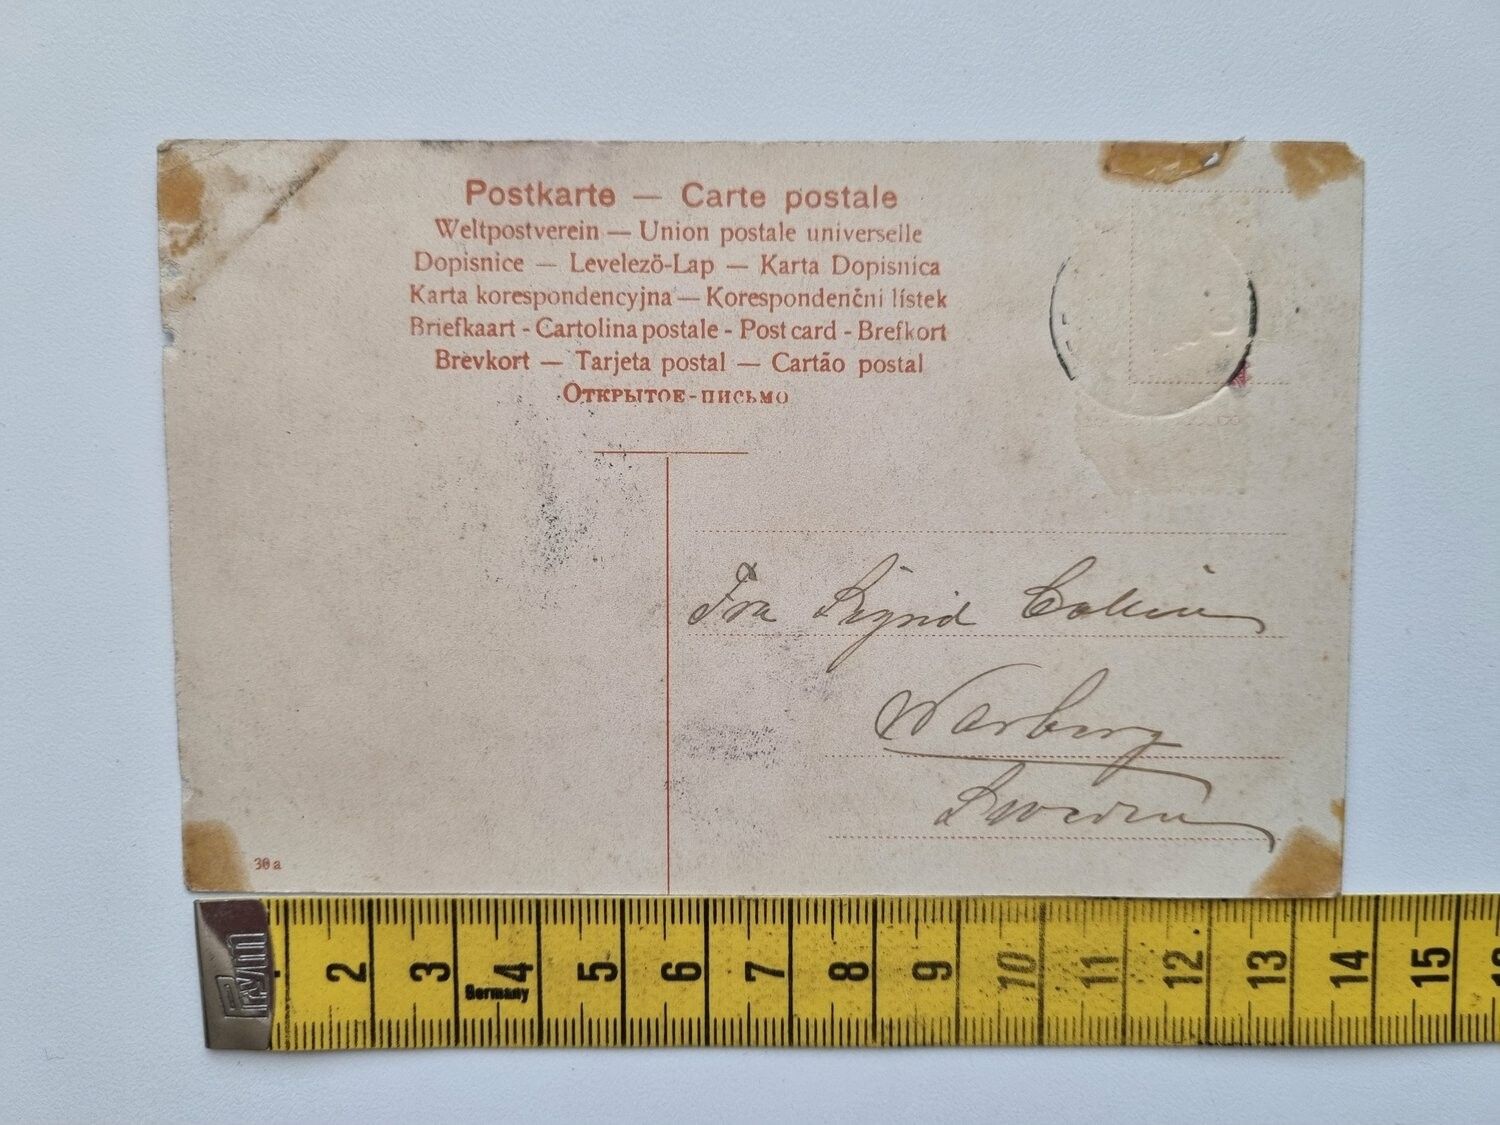 Postkarte — Carte postale
Weltpostverein — Union postale universelle
Dopisnice — Levelezö-Lap — Karta Dopisnica
Karta korespondencyjna — Korespondenční lístek
Briefkaart - Cartolina postale - Post card - Brefkort
Brevkort — Tarjeta postal — Cartão postal
Открытое-письмо
Fra Sigrid
Warberg
Sweden
30a
Prym
2 3 4 5 6 7 8 9 10 11 12 13 14 15
Germany